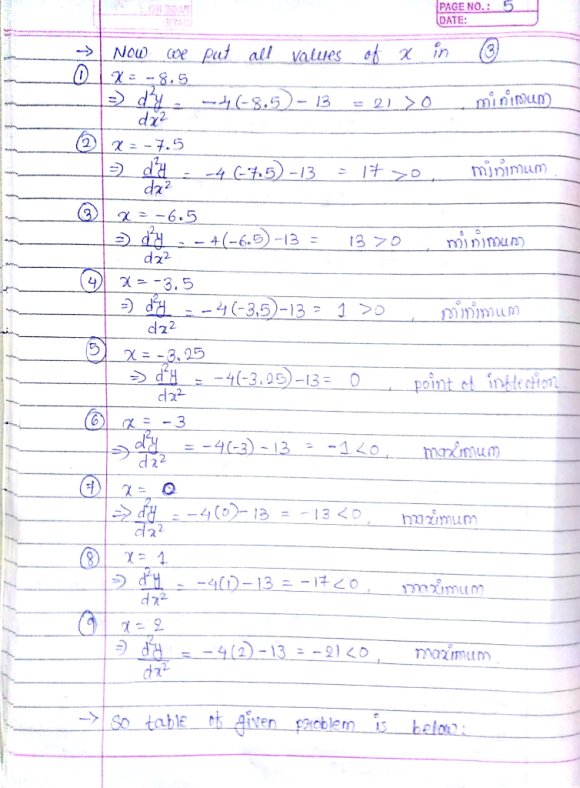 PAGE NO.: 5
DATE:
→ Now we put all values of x in ③
① x = -8.5
⇒ d²y/dx² = -4(-8.5) - 13 = 21 > 0, minimum
② x = -7.5
⇒ d²y/dx² = -4(-7.5) - 13 = 17 > 0, minimum
③ x = -6.5
⇒ d²y/dx² = -4(-6.5) - 13 = 13 > 0, minimum
④ x = -3.5
⇒ d²y/dx² = -4(-3.5) - 13 = 1 > 0, minimum
⑤ x = -3.25
⇒ d²y/dx² = -4(-3.25) - 13 = 0, point of inflection
⑥ x = -3
⇒ d²y/dx² = -4(-3) - 13 = -1 < 0, maximum
⑦ x = 0
⇒ d²y/dx² = -4(0) - 13 = -13 < 0, maximum
⑧ x = 1
⇒ d²y/dx² = -4(1) - 13 = -17 < 0, maximum
⑨ x = 2
⇒ d²y/dx² = -4(2) - 13 = -21 < 0, maximum
→ So table of given problem is below: